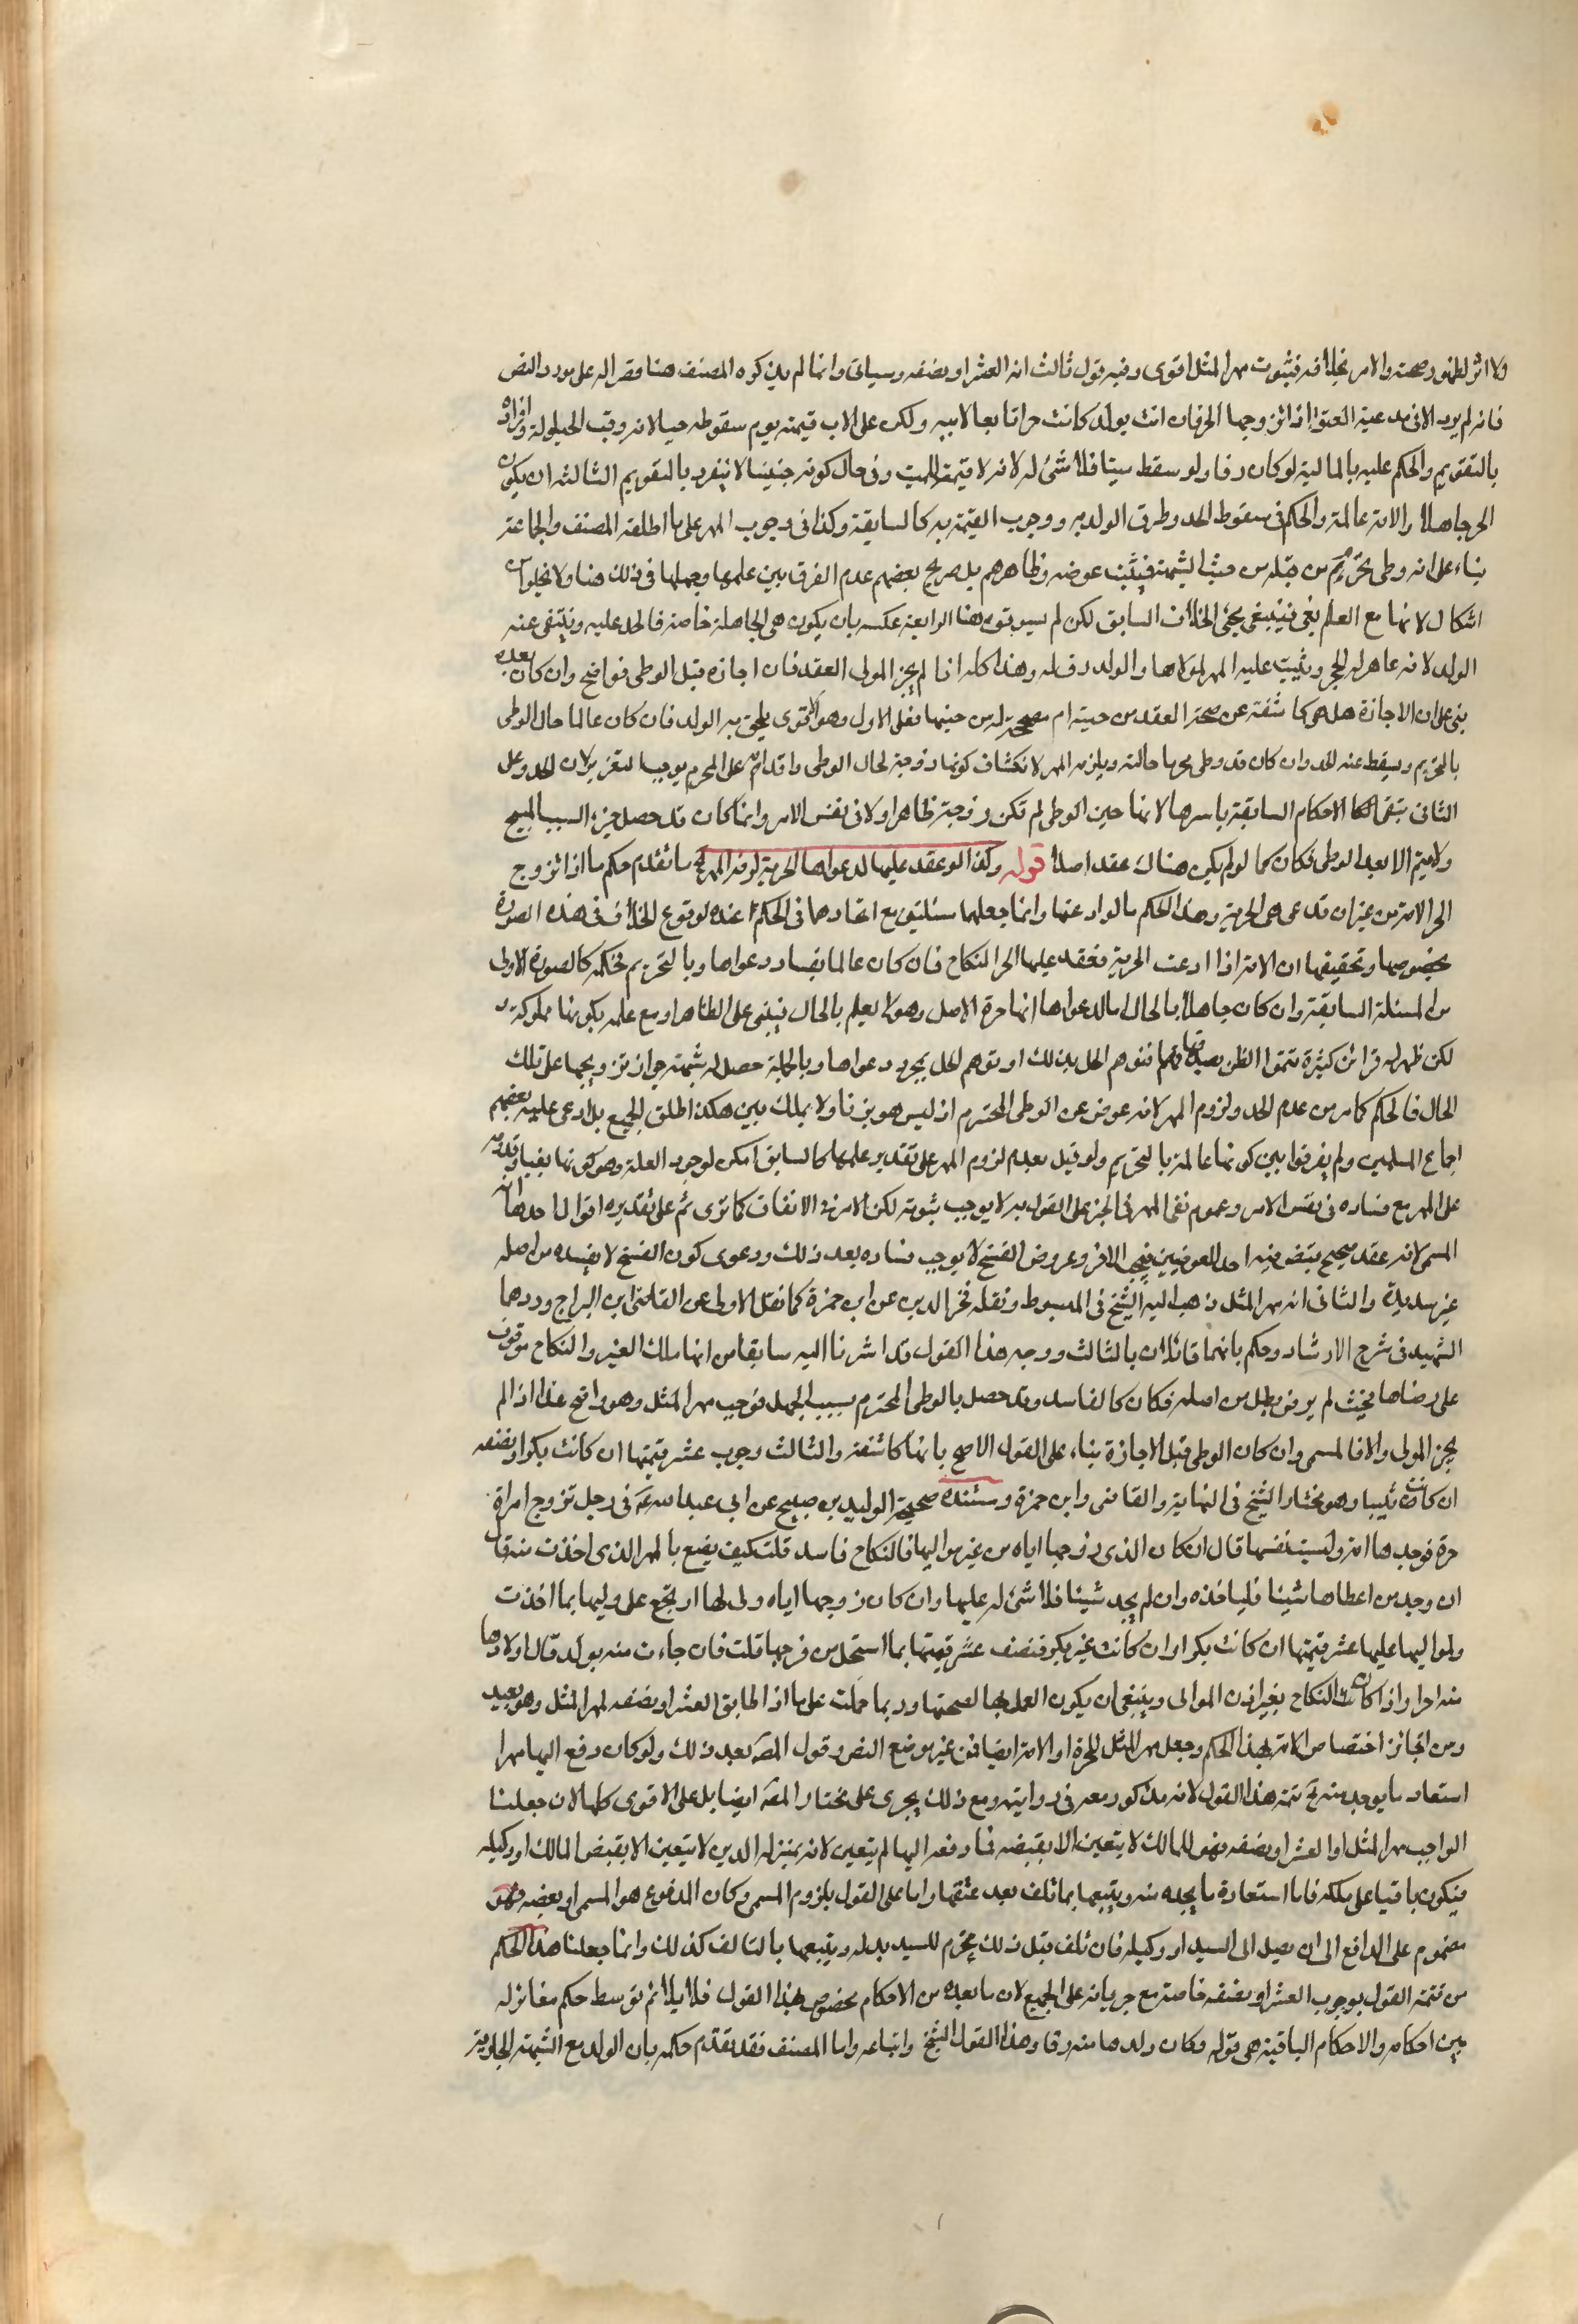 ولا اثر لظهور صحته والامر بخلافه فثبوت مهر المثل اقوى وفيه قول ثالث انه العشر او نصفه وسياتى وانما لم يذكره المصنف هنا قصرا له على مورد النص
فانه لم يرد الا فى مدعية العتق اذا تزوجها الحر فان اتت بولد كانت حرا تابعا لابيه ولكن على الاب قيمته يوم سقوطه حيا لانه وقت الحيلولة وافراده
بالتقويم والحكم عليه بالمالية لو كان رقا ولو سقط ميتا فلا شئ له لانه لا قيمة للميت وفى حال كونه جنينا لا ينفرد بالتقويم الثالثة ان يكون
الحر جاهلا والامة عالمة والحكم فى سقوط الحد وطرق الولد به ووجوب القيمة به كالسابقة وكذا فى وجوب المهر على ما اطلقه المصنف والجماعة
بناء على انه وطى محترم من قبله من حيث الشبهة فيثبت عوضه وظاهرهم بل صريح بعضهم عدم الفرق بين علمها وجهلها فى ذلك هنا ولا يخلو من
اشكال لانها مع العلم بغى فينبغى مجئ الخلاف السابق لكن لم يسبوقه هنا الرابعة عكسه بان يكون هى الجاهلة خاصة فالحد عليه وينتفى عنه
الولد لانه عاهر له الحجر ويثبت عليه المهر لمولاها والولد رق له وهذا كله اذا لم يجز المولى العقد فان اجازه قبل الوطى فواضح وان كان بعده
بنى على ان الاجازة هل هى كاشفة عن صحة العقد من حينه ام مصححة له من حينها فعلى الاول وهو الاقوى يلحق به الولد فان كان عالما حال الوطى
بالتحريم ويسقط عنه الحد وان كان قد وطى محرما حالته ويلزمه المهر لانكشاف كونها زوجة لحال الوطى واقدامه على المحرم يوجب التعزير لان الحد وعلى
الثانى ينتفى الاحكام السابقة باسرها لانها حين الوطى لم تكن زوجة ظاهرا ولا فى نفس الامر وانما كان قد حصل جزء السبب المبيح
ولا يتم الا بعد الوطى فكان كما لو لم يكن هناك عقد اصلا قوله وكذا لو عقد عليها لدعواها الحرية لزمه المهر ما تقدم حكم ما اذا تزوج
الحر الامة من غير ان تدعى هى الحرية وهذا الحكم ما لو ادعتها وانما جعلهما مسئلتين مع اتحادهما فى الحكم عنده لوقوع الخلاف فى هذه الصورة
بخصوصها وتحقيقها ان الامة اذا ادعت الحرية فعقد عليها الحر النكاح فان كان عالما بفساد دعواها وبالتحريم فحكمه كالصورة الاولى
من المسئلة السابقة وان كان جاهلا بالحال اما لدعواها انها حرة الاصل وهو لا يعلم بالحال فيبنى على الظاهر او مع علمه بكونها مملوكة
لكن ظهر له قرائن كثيرة تتمول الظن بصدقها فتوهم الحل بذلك او توهم الحل بمجرد دعواها وبالجملة حصل له شبهة جواز تزويجها على تلك
الحال فالحكم كما مر من عدم الحد ولزوم المهر لانه عوض عن الوطى المحترم اذ ليس هو بزنا ولا بملك يمين هكذا اطلق الجميع بل ادعى عليه بعضهم
اجماع المسلمين ولم يفرقوا بين كونها عالمة بالتحريم ولو قيل بعدم لزوم المهر على تقدير علمها كالسابق امكن لوجود العلة وهو كونها بغيا وقدومه
على المهر مع فساده فى نفس الامر وعموم نفى المهر فى الخبر على القول به لا يوجب ثبوته لكن الامر فى الاتفاق كما ترى ثم على تقديره اقوال احدها انه
المسمى لانه عقد صحيح يتضمن فيه احد العوضين فيجب الاخر وعروض الفسخ لا يوجب فساده بعد ذلك ودعوى كون الفسخ لا يفسده من اصله
غير سديدة والثانى انه مهر المثل ذهب اليه الشيخ فى المبسوط ونقله فخر الدين عن ابن حمزة كما نقل الاولى عن القاضى ابن البراج وردهما
الشهيد فى شرح الارشاد وحكم بانهما قائلان بالثالث ووجه هذا القول قد اشرنا اليه سابقا من انها ملك الغير والنكاح موقوف
على رضاها فحيث لم يرض بطل من اصله فكان كالفاسد وقد حصل بالوطى المحترم بسبب الجهل فوجب مهر المثل وهو واضح هذا اذا لم
يجز المولى والا فالمسمى وان كان الوطى قبل الاجازة بناء على القول الاصح بانها كاشفة والثالث وجوب عشر قيمتها ان كانت بكرا ونصفه
ان كانت ثيبا وهو مختار الشيخ فى النهاية والقاضى وابن حمزة ومستنده صحيحة الوليد بن صبيح عن ابى عبد الله ع فى رجل تزوج امراة
حرة فوجدها امة دلست نفسها قال ان كان الذى زوجها اياه من غير مواليها فالنكاح فاسد قلت كيف يصنع بالمهر الذى اخذت منه قال
ان وجد من اعطاها شيئا فلياخذه وان لم يجد شيئا فلا شئ له عليها وان كان زوجها اياه ولى لها ارتجع على وليها بما اخذت
ولمواليها عليها عشر قيمتها ان كانت بكرا وان كانت غير بكر فنصف عشر قيمتها بما استحل من فرجها قلت فان جاءت منه بولد قال اولادها
منه احرار اذا كان النكاح بغير اذن الموالى وينبغى ان يكون العمل بها لصحتها وربما حملت على ما اذا طابق العشر او نصفه لمهر المثل وهو بعيد
ومن الجائز اختصاص الامة بهذا الحكم وجعل مهر المثل للحرة او الامة ايضا فى غير موضع النص وقول المصه بعد ذلك ولو كان دفع اليها مهرا
استعاد ما يوجد منه تتمة هذا القول لانه مذكور معه فى روايته ومع ذلك يجرى على مختار المصه ايضا بل على الاقوى كلها لان جعلنا
الواجب مهر المثل او العشر او نصفه فهو للمالك لا يتعين الا بقبضه فما دفعه اليها لم يتعين لانه بمنزلة الدين لا يتعين الا بقبض المالك او وكيله
فيكون باقيا على ملكه فاما استعادة ما يجده منه ويتبعها بما تلف بعد عتقها واما على القول بلزوم المسمى وكان المدفوع هو المسمى او بعضه فهو
مضموم على الدافع الى ان يصل الى السيد او وكيله فان تلف قبل ذلك غرم للسيد بدله ويتبعها بالتالف كذلك وانما جعلنا هذا الحكم
من تتمة القول بوجوب العشر او نصفه خاصة مع جريانه على الجميع لان ما بعده من الاحكام مخصوص بهذا القول فلا يلائم توسط حكم مغاير له
بين احكامه والاحكام الباقية هى قوله وكان ولدها منه رقا وهذا القول للشيخ واتباعه واما المصنف فقد تقدم حكمه بان الولد مع الشبهة